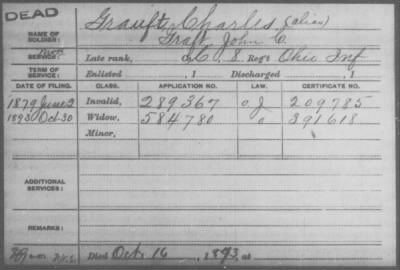 DEAD
Graufte, Charles (alias)
NAME OF SOLDIER: Graft, John C.
SERVICE: Late rank, Co. C, 8, Reg't Ohio Inf
TERM OF SERVICE: Enlisted , 1 Discharged , 1
DATE OF FILING. CLASS. APPLICATION NO. LAW. CERTIFICATE NO.
1879 June 2 Invalid, 289367 209785
1893 Oct 30 Widow, 584780 391618
Minor,
ADDITIONAL SERVICES:
REMARKS:
Died Oct. 16, 1893, at